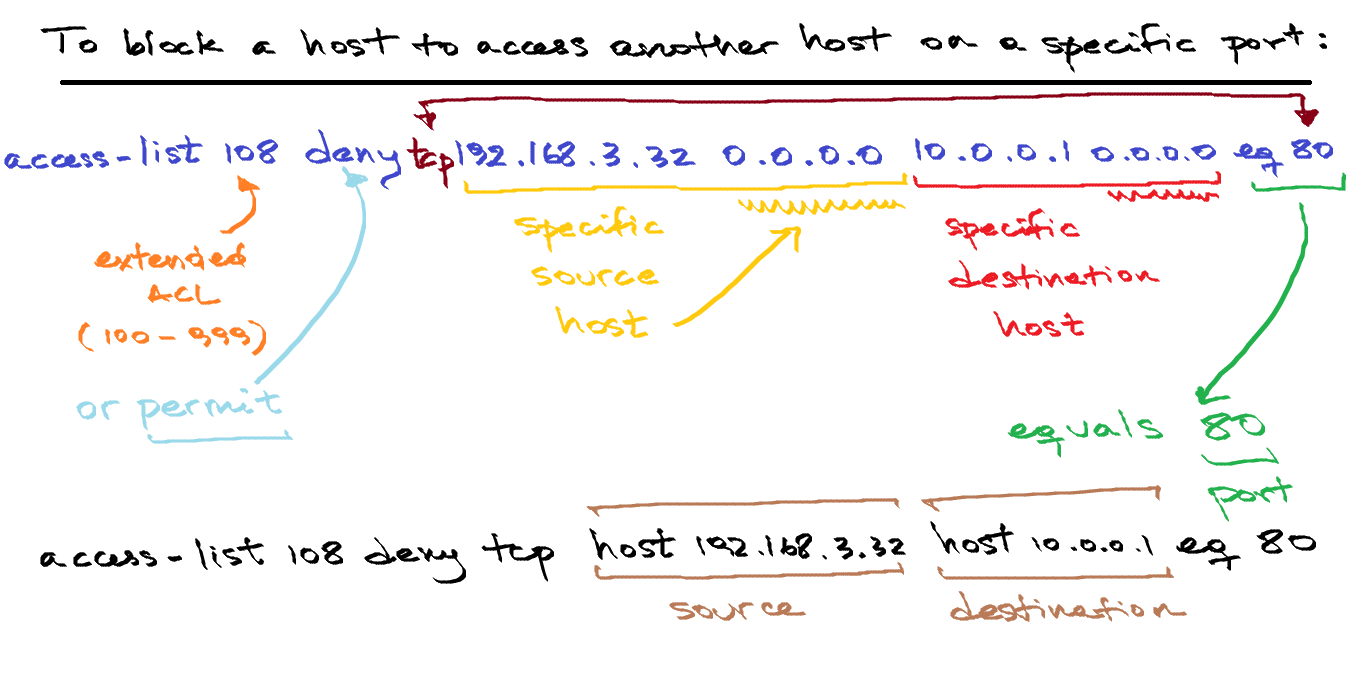 To block a host to access another host on a specific port:
access-list 108 deny tcp 192.168.3.32 0.0.0.0 10.0.0.1 0.0.0.0 eq 80
extended
ACL
(100-999)
or permit
specific
source
host
specific
destination
host
equals 80
port
access-list 108 deny tcp host 192.168.3.32 host 10.0.0.1 eq 80
source
destination